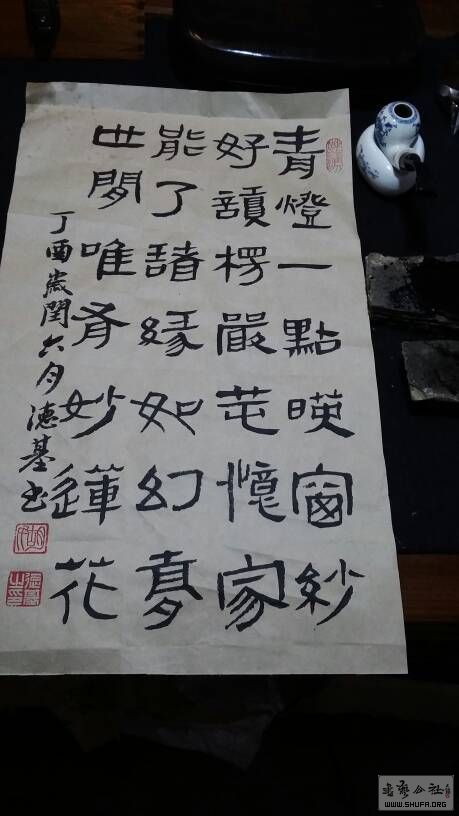 青燈一點暎窗紗
好讀楞嚴莫憶家
能了諸緣如幻夢
世間唯有妙蓮花
丁酉歲閏六月德基书
书艺公社
WWW.SHUFA.ORG